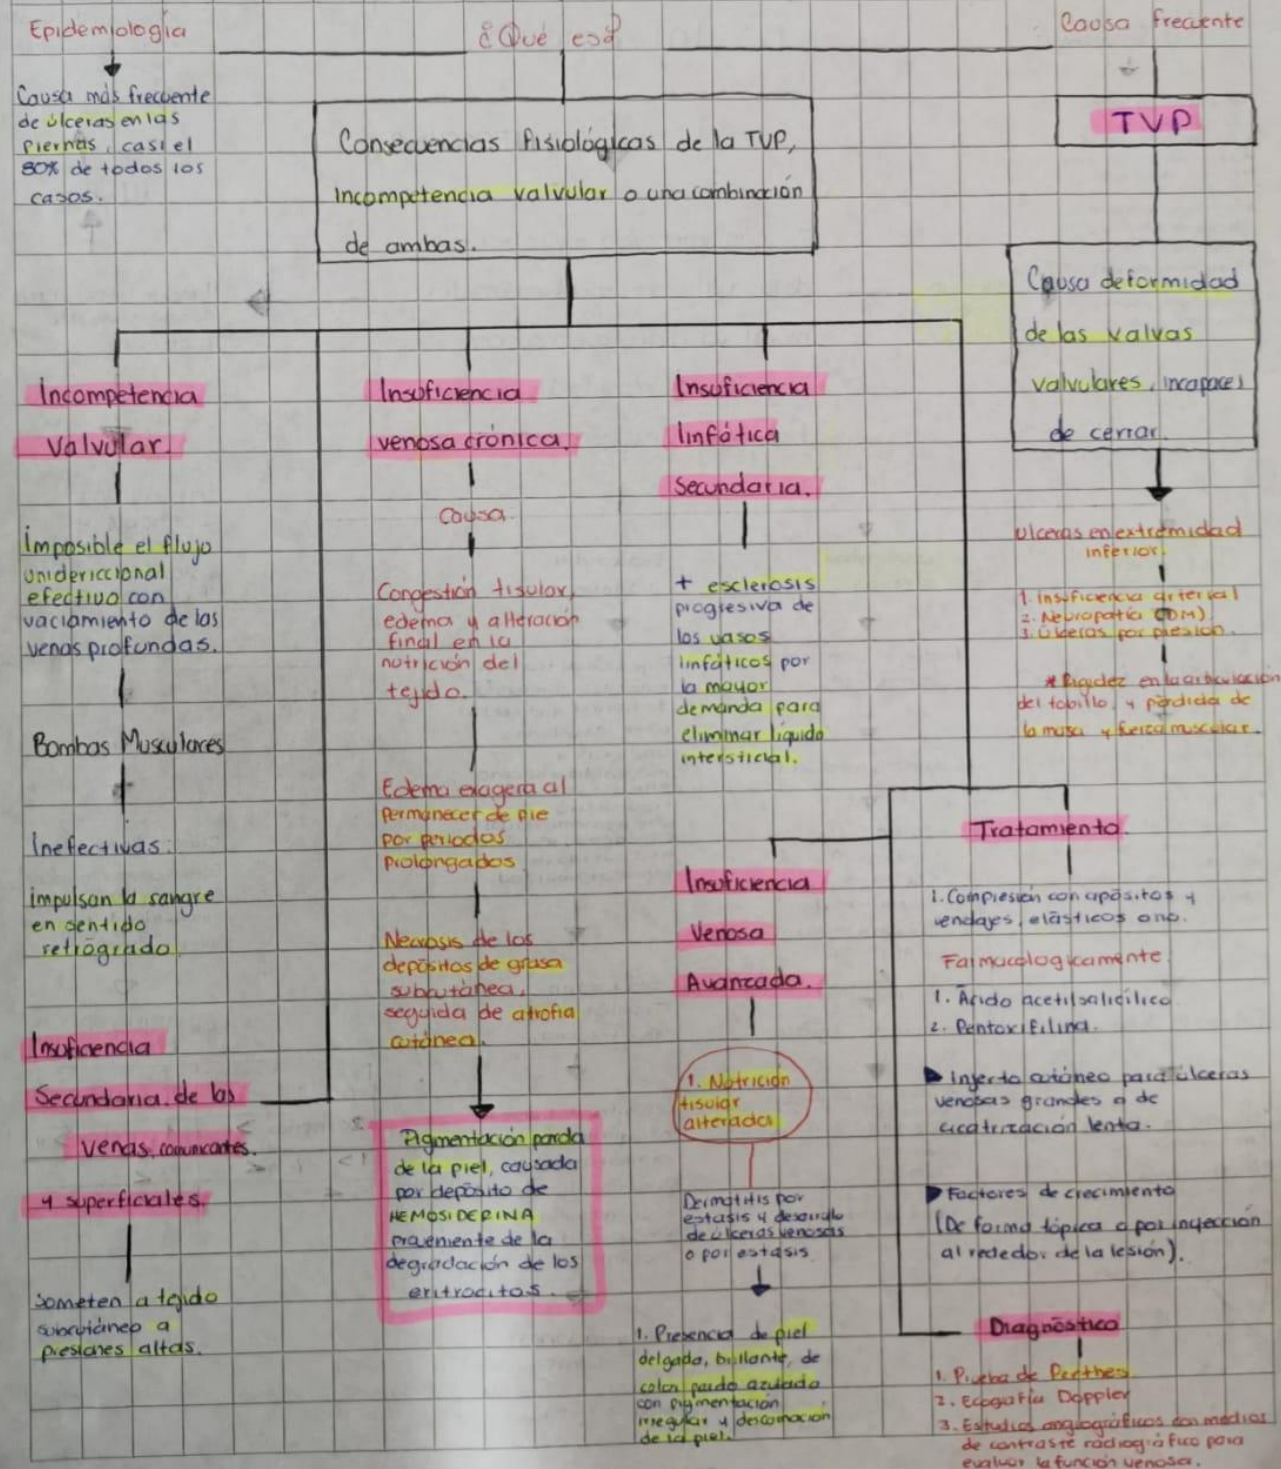 Epidemiología
¿Qué es?
Causa frecuente
Causa más frecuente
de úlceras en las
piernas, casi el
80% de todos los
casos.
Consecuencias fisiológicas de la TVP,
incompetencia valvular o una combinación
de ambas.
TVP
Causa deformidad
de las valvas
valvulares, incapaces
de cerrar.
Ulceras en extremidad
inferior
1. Insuficiencia arterial
2. Neuropatía (DM)
3. Úlceras por presión.
* Rigidez en la articulación
del tobillo, y pérdida de
la masa y fuerza muscular.
Incompetencia
Valvular.
Imposible el flujo
unidericcional
efectivo con
vaciamiento de las
venas profundas.
Bombas Musculares
Inefectivas.
impulsan la sangre
en sentido
retrógrado
Insuficiencia
Secundaria de las
venas comunicantes.
y superficiales.
Someten a tejido
subcutáneo a
presiones altas.
Insuficiencia
venosa crónica.
Causa
Congestión tisular,
edema y alteración
final en la
nutrición del
tejido.
Edema exagera al
permanecer de pie
por periodos
prolongados
Necrosis de los
depósitos de grasa
subcutánea,
seguida de atrofia
cutánea.
Pigmentación parda
de la piel, causada
por depósito de
HEMOSIDERINA
proveniente de la
degradación de los
eritrocitos.
Insuficiencia
linfática
Secundaria.
+ esclerosis
progresiva de
los vasos
linfáticos por
la mayor
demanda para
eliminar líquido
intersticial.
Insuficiencia
Venosa
Avanzada.
1. Nutrición
tisular
alterada
Dermatitis por
estasis y desarrollo
de úlceras venosas
o por estasis
1. Presencia de piel
delgada, brillante, de
color pardo azulado
con pigmentación
irregular y descamación
de la piel.
Tratamiento.
1. Compresión con apósitos y
vendajes, elásticos o no.
Farmacologicamente
1. Ácido acetilsalicílico
2. Pentoxifilina.
Injerto cutáneo para úlceras
venosas grandes o de
cicatrización lenta.
Factores de crecimiento
(De forma tópica o por inyección
al rededor de la lesión).
Diagnóstico
1. Prueba de Perthes
2. Ecografía Doppler
3. Estudios angiográficos con medios
de contraste radiográfico para
evaluar la función venosa.